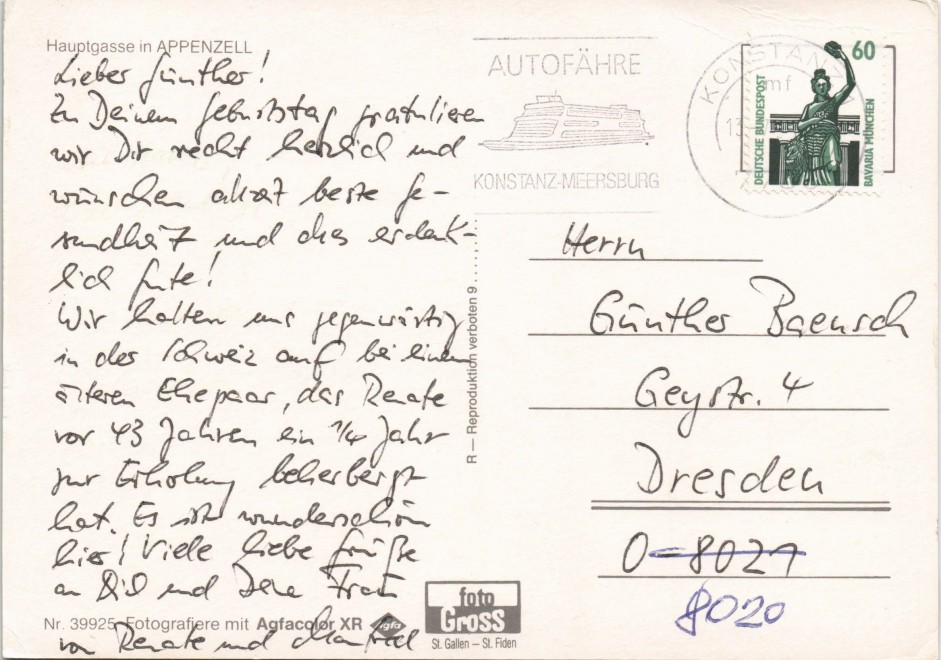 Hauptgasse in APPENZELL
Lieber Günther!
Zu Deinem Geburtstag gratulieren
wir Dir recht herzlich und
wünschen allzeit beste Ge-
sundheit und das erdenk-
lich Gute!
Wir halten uns gegenwärtig
in der Schweiz auf bei einem
älteren Ehepaar, das Renate
vor 43 Jahren ein 1/4 Jahr
zur Erholung beherbergt
hat. Es ist wunderschön
hier! Viele liebe Grüße
an Dich und Deine Frau
Nr. 39925 Fotografiere mit Agfacolor XR
von Renate und Manfred
R — Reproduktion verboten 9
foto
Gross
St. Gallen — St. Fiden
AUTOFÄHRE
KONSTANZ-MEERSBURG
KONSTANZ
mf
13
60
DEUTSCHE BUNDESPOST
BAVARIA MÜNCHEN
Herrn
Günther Baensch
Geystr. 4
Dresden
O-8021
8020